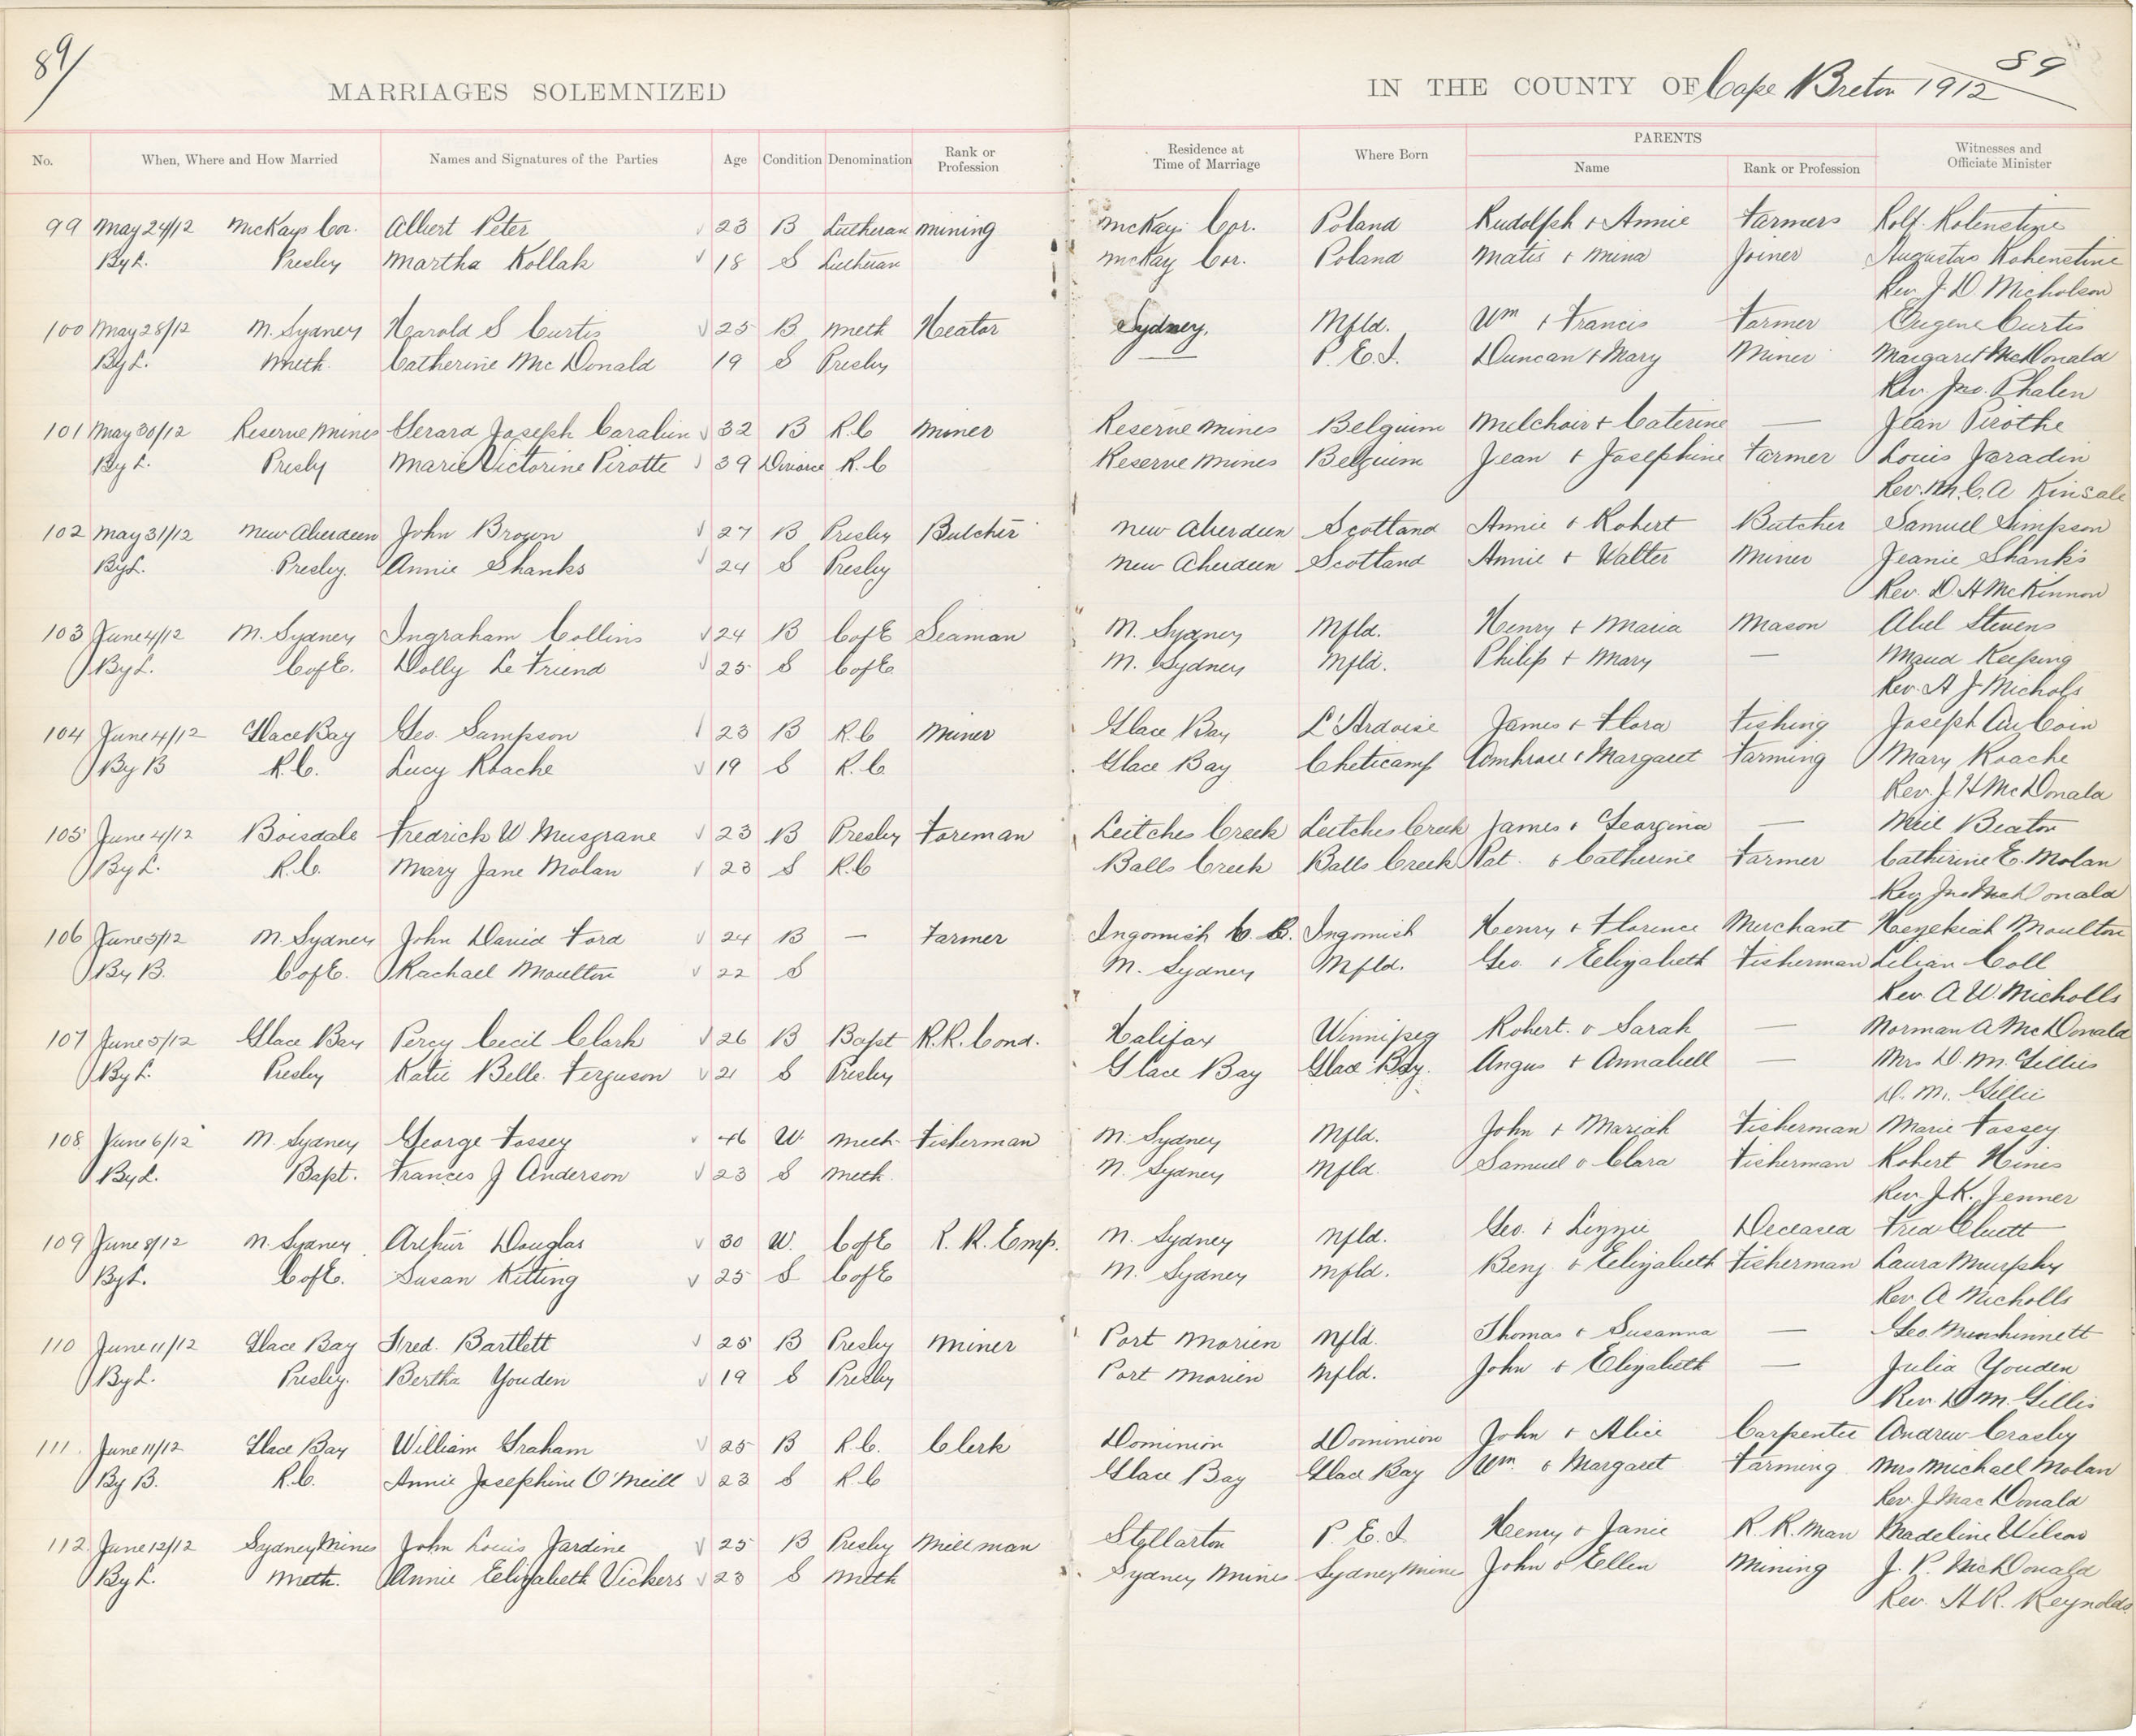 89/
89
MARRIAGES SOLEMNIZED IN THE COUNTY OF Cape Breton 1912
No. When, Where and How Married Names and Signatures of the Parties Age Condition Denomination Rank or Profession Residence at Time of Marriage Where Born PARENTS Name Rank or Profession Witnesses and Officiate Minister
99 May 24/12 McKays Cor. Albert Peter 23 B Lutheran mining McKays Cor. Poland Rudolph + Annie Farmers Rolf. Rohenstine
By L. Presby Martha Kollak 18 S Lutheran McKay Cor. Poland Matis + Mina Joiner Augustas Rohenstine
Rev. J. D. Nicholson
100 May 28/12 N. Sydney Harold S Curtis 25 B Meth Heator Sydney. Nfld. Wm + Francis Farmer Eugene Curtis
By L. Meth. Catherine McDonald 19 S Presby — P. E. I. Duncan + Mary Miner Margaret McDonald
Rev. Jno. Phalen
101 May 30/12 Reserve Mines Gerard Joseph Carabin 32 B R.C Miner Reserve Mines Belgium Melchoir + Caterine — Jean Pirothe
By L. Presby Marie Victorine Pirotte 39 Divorce R.C Reserve Mines Belgium Jean + Josephine Farmer Louis Jaradin
Rev. M. C. A Kinsale
102 May 31/12 New Aberdeen John Brown 27 B Presby Butcher New Aberdeen Scotland Annie & Robert Butcher Samuel Simpson
By L. Presby. Annie Shanks 24 S Presby New Aberdeen Scotland Annie + Walter Miner Jeanie Shanks
Rev. D. H McKinnon
103 June 4/12 N. Sydney Ingraham Collins 24 B C of E Seaman N. Sydney Nfld. Henry + Maria Mason Abel Stevens
By L. C of E. Dolly Le Friend 25 S C of E N. Sydney Nfld. Philip + Mary — Maud Keeping
Rev. A J Nichols
104 June 4/12 Glace Bay Geo. Sampson 23 B R.C Miner Glace Bay L'Ardoise James + Flora Fishing Joseph AuCoin
By B R.C. Lucy Roache 19 S R.C Glace Bay Cheticamp Ambrose + Margaret Farming Mary Roache
Rev. J. H McDonald
105 June 4/12 Boisdale Fredrich W Musgrane 23 B Presby Foreman Leitches Creek Leitches Creek James & Georgina — Neil Beaton
By L. R.C. Mary Jane Nolan 23 S R.C Balls Creek Balls Creek Pat. & Catherine Farmer Catherine E. Nolan
Rev Jno MacDonald
106 June 5/12 N. Sydney John David Ford 24 B — Farmer Ingonish C. B. Ingonish Henry + Florence Merchant Hezekiah Moulton
By B. C of E. Rachael Moulton 22 S N. Sydney Nfld. Geo. + Elizabeth Fisherman Lilian Coll
Rev. A W. Nicholls
107 June 5/12 Glace Bay Percy Cecil Clark 26 B Bapt R.R. Cond. Halifax Winnipeg Robert. & Sarah — Norman A McDonald
By L. Presby Katie Belle. Ferguson 21 S Presby Glace Bay Glace Bay. Angus + Annabell — Mrs D. M. Gillies
D. M. Gillie
108 June 6/12 N. Sydney George Fossey 46 W. Meth. Fisherman N. Sydney Nfld. John + Mariah Fisherman Marie Fossey
By L. Bapt. Frances J Anderson 23 S Meth. N. Sydney Nfld. Samuel & Clara Fisherman Robert Hines
Rev. J. K. Jenner
109 June 8/12 N. Sydney Arthur Douglas 30 W. C of E R. R. Emp. N. Sydney Nfld. Geo. + Lizzie Deceased Fred Cluett
By L. C of E. Susan Kitting 25 S C of E N. Sydney Nfld. Benj & Elizabeth Fisherman Laura Murphy
Rev. A Nicholls
110 June 11/12 Glace Bay Fred. Bartlett 25 B Presby Miner Port Morien Nfld. Thomas & Susanna — Geo. Munshinnett
By L. Presby. Bertha Youden 19 S Presby Port Morien Nfld. John & Elizabeth — Julia Youden
Rev. D M. Gillis
111. June 11/12 Glace Bay William Graham 25 B R.C. Clerk Dominion Dominion John + Alice Carpenter Andrew Crasby
By B. R.C. Annie Josephine O'Neill 23 S R.C Glace Bay Glace Bay Wm. & Margaret Farming Mrs Michael Nolan
Rev. J. MacDonald
112. June 12/12 Sydney Mines John Louis Jardine 25 B Presby Mill man Stellarton P. E. I Henry & Janie R. R. Man Madeline Wilson
By L. Meth. Annie Elizabeth Vickers 23 S Meth Sydney Mines Sydney Mines John & Ellen Mining J. P. McDonald
Rev. H R. Reynolds